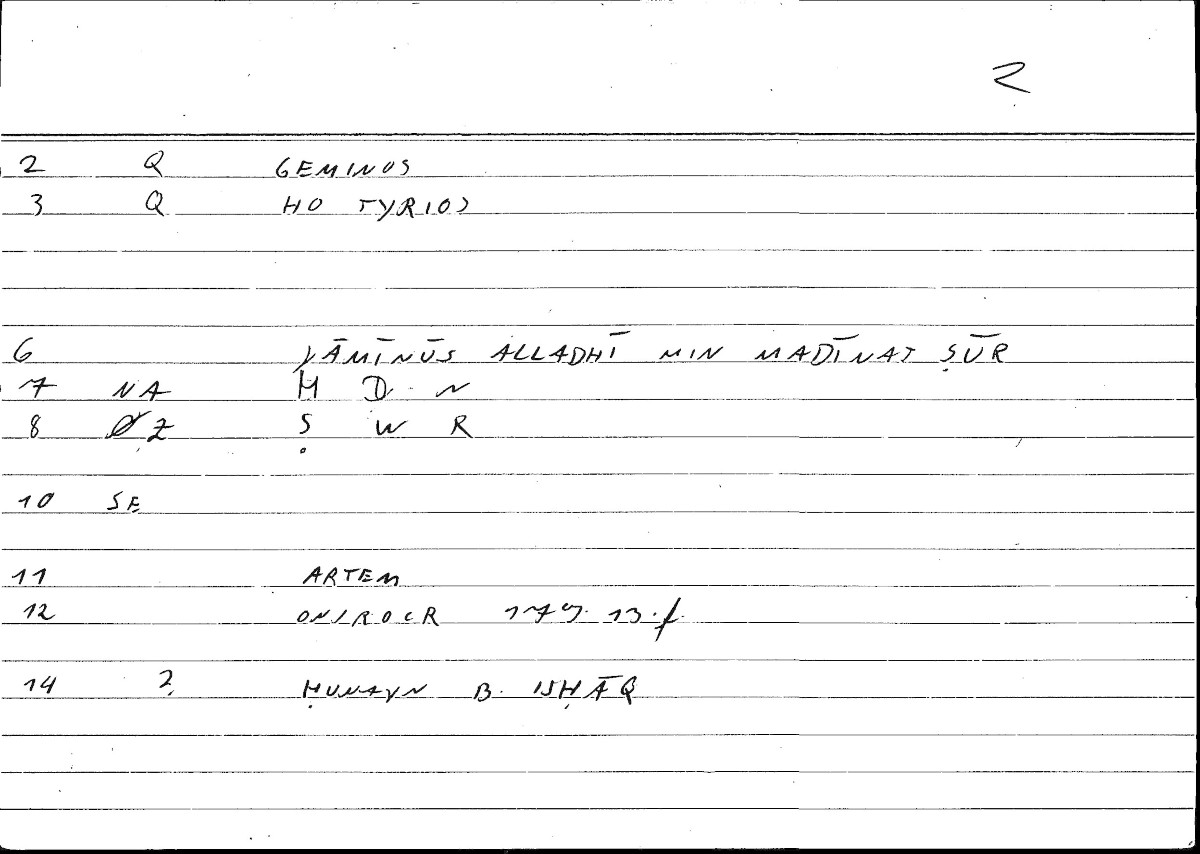 2
2 Q GEMINOS
3 Q HO TYRIOS
6 YĀMĪNŪS ALLADHĪ MIN MADĪNAT ṢŪR
7 NA M D N
8 Z Ṣ W R
10 SE
11 ARTEM
12 ONIROCR 179. 13.f
14 2 ḤUNAYN B. ISḤĀQ